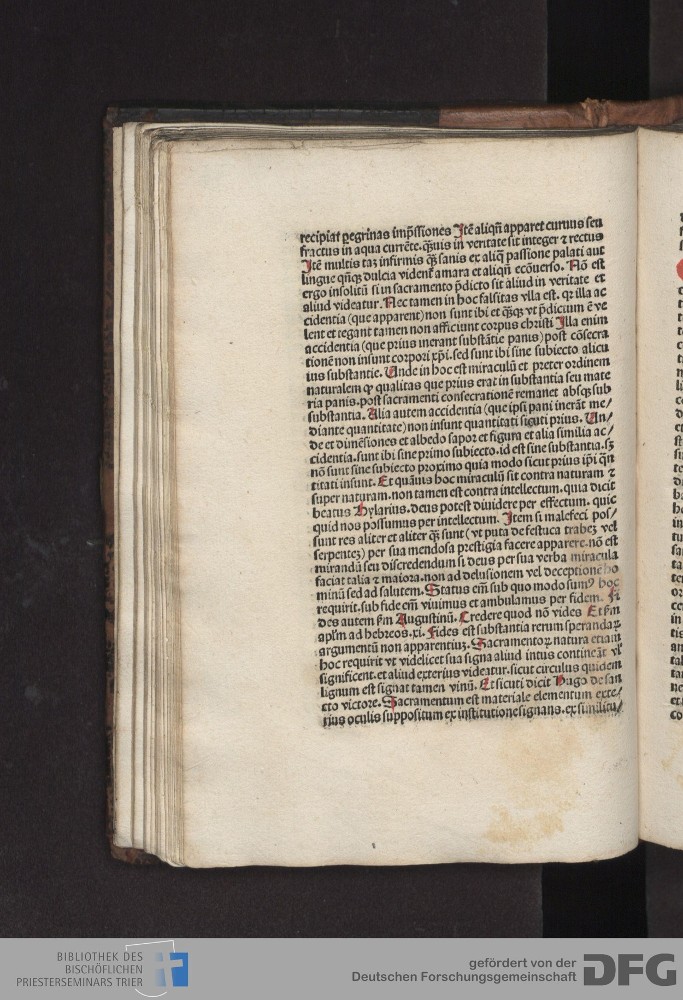 recipiat ꝑegrinas impͤssiones Itē aliqñ apparet curuus seu
fractus in aqua currēte. qͣuis in veritate sit integer ⁊ rectus
Itē multis taꝫ infirmis qͣꝫ sanis ex aliq̄ passione palati aut
lingue qñqꝫ dulcia vident̄ amara et aliqñ ecōuerso. Nō est
ergo insolitū si in sacramento p̄dicto sit aliud in veritate et
aliud videatur. Nec tamen in hoc falsitas vlla est. qꝛ illa ac
cidentia (que apparent) non sunt ibi et qͣꝫqꝫ vt p̄dicium ē ve
lent et tegant tamen non afficiunt corpus christi Illa enim
accidentia (que prius inerant substātie panis) post cōsecra
tionē non insunt corpori xp̄i. sed sunt ibi sine subiecto alicu
ius substantie. Unde in hoc est miraculū et preter ordinem
naturalem ꝙ qualitas que prius erat in substantia seu mate
ria panis. post sacramenti consecrationē remanet absqꝫ sub
substantia. Alia autem accidentia (que ipsi pani inerāt me/
diante quantitate) non insunt quantitati sicuti prius. Un/
de et dimēsiones et albedo sapor et figura et alia similia ac/
cidentia. sunt ibi sine primo subiecto. id est sine substantia. sꝫ
nō sunt sine subiecto proximo quia modo sicut prius ip̄i qn̄
titati insunt. Et quāuis hoc miraculū sit contra naturam ⁊
super naturam. non tamen est contra intellectum. quia dicit
beatus Hylarius. deus potest diuidere per effectum. quic
quid nos possumus per intellectum. Item si malefeci pos/
sunt res aliter et aliter qͣꝫ sunt (vt puta de festuca trabeꝫ vel
serpenteꝫ) per sua mendosa prestigia facere apparere. nō est
mirandū seu discredendum si deus per sua verba miracula
faciat talia ⁊ maiora. non ad delusionem vel deceptionē ho
minū sed ad salutem. Status em̄ sub quo modo sumꝰ hoc
requirit. sub fide em̄ viuimus et ambulamus per fidem. Fi
des autem ẜm Augustinū. Credere quod nō vides Et ẜm
apl̄m ad hebreos. xi. Fides est substantia rerum sperandaꝝ
argumentū non apparentiuꝫ. Sacramentoꝝ natura etiam
hoc requirit vt videlicet sua signa aliud intus contineāt vl̓
significent. et aliud exterius videatur. sicut circulus quidem
lignum est signat tamen vinū. Et sicuti dicit Hugo de san
cto victore. Sacramentum est materiale elementum exte/
rius oculis suppositum ex institutione signans. ex similitu/
BIBLIOTHEK DES
BISCHÖFLICHEN
PRIESTERSEMINARS TRIER
gefördert von der
Deutschen Forschungsgemeinschaft
DFG